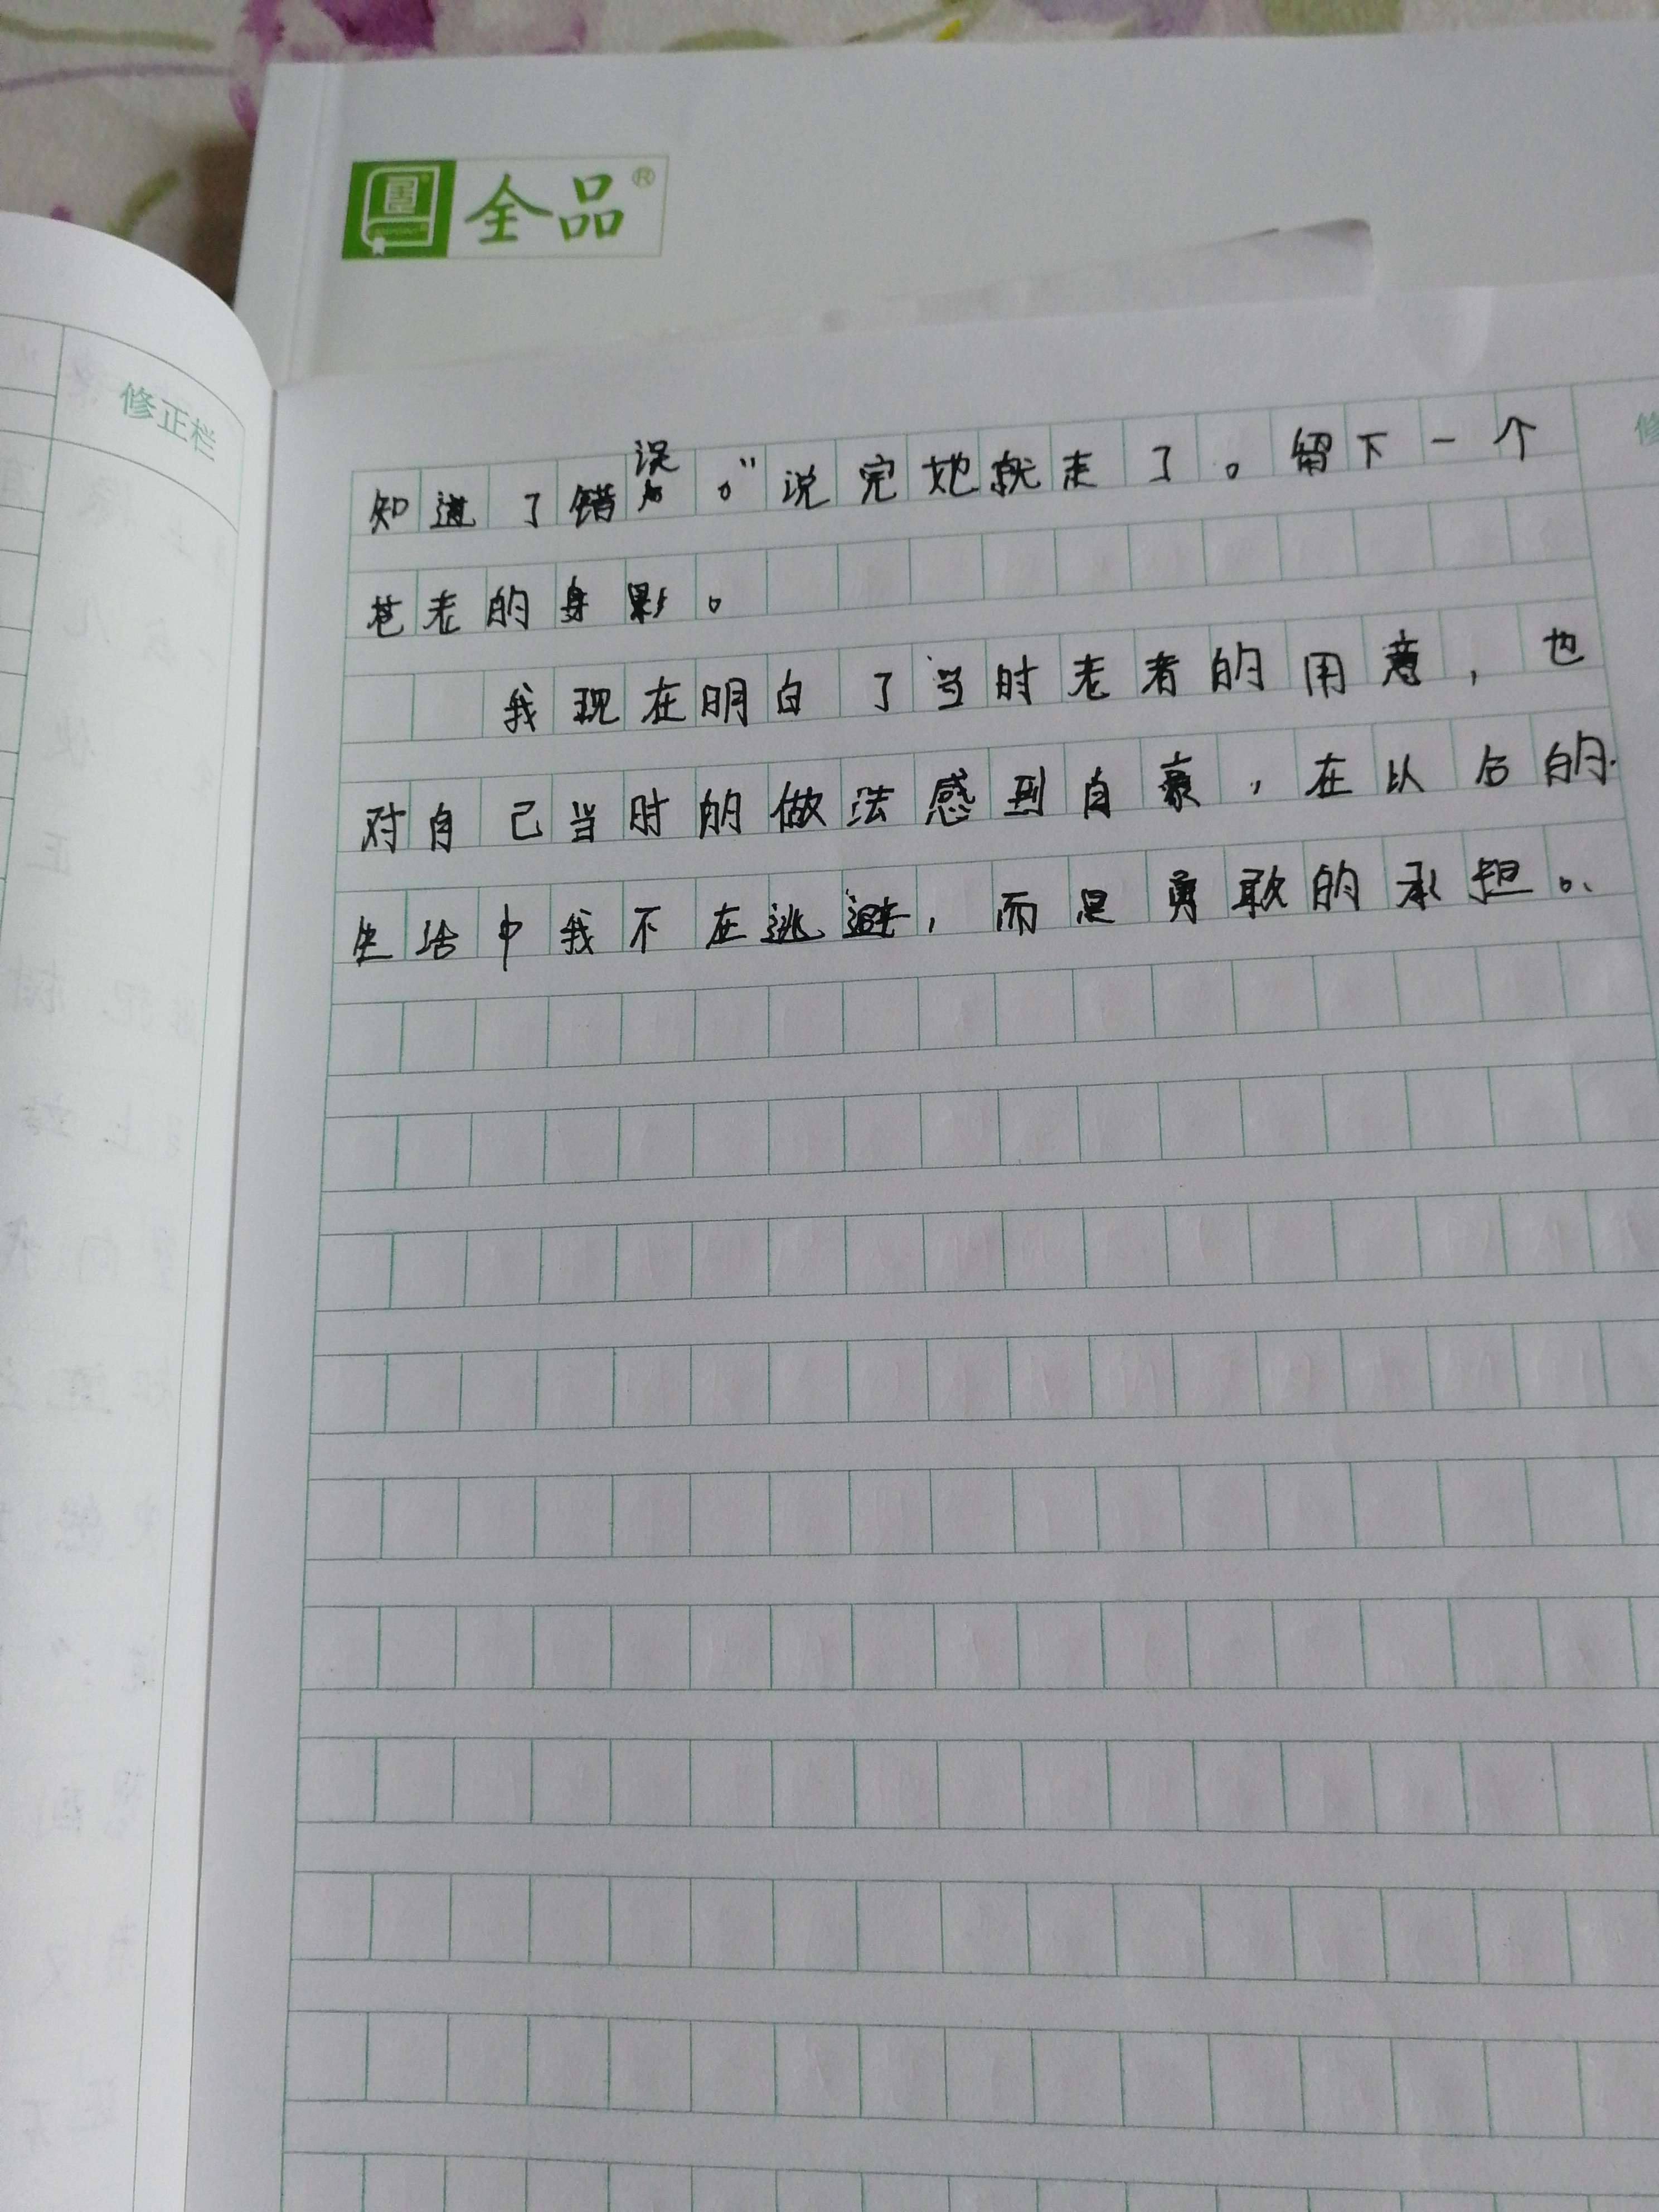 全品®
修正栏
知道了错误。”说完她就走了。留下一个
苍老的身影。
我现在明白了当时老者的用意，也
对自己当时的做法感到自豪，在以后的
生活中我不在逃避，而是勇敢的承担。